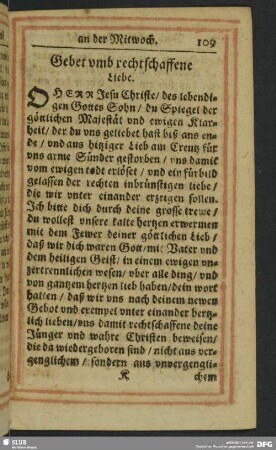 an der Mitwoch. 109
Gebet vmb rechtschaffene
Liebe.
O HERR Jesu Christe / des lebendi-
gen Gottes Sohn / du Spiegel der
göttlichen Majestät und ewigen Klar-
heit / der du vns geliebet hast biß ans en-
de / vnd aus hitziger Lieb am Creutz für
vns arme Sünder gestorben / vns damit
vom ewigen todt erlöset / vnd ein fürbild
gelassen der rechten inbrünstigen liebe /
die wir vnter einander erzeigen sollen.
Ich bitte dich durch deine grosse trewe /
du wollest vnsere kalte hertzen erwermen
mit dem Fewer deiner göttlichen Lieb /
daß wir dich waren Gott / mit Vater vnd
dem heiligen Geist / in einem ewigen vn-
zertrennlichen wesen / vber alle ding / vnd
von gantzem hertzen lieb haben / dein wort
halten / daß wir vns nach deinem newen
Gebot vnd exempel vnter einander hertz-
lich lieben / vns damit rechtschaffene deine
Jünger vnd wahre Christen beweisen /
die da wiedergeboren sind / nicht aus ver-
genglichem / sondern aus vnvergengli-
K chem
SLUB
DFG